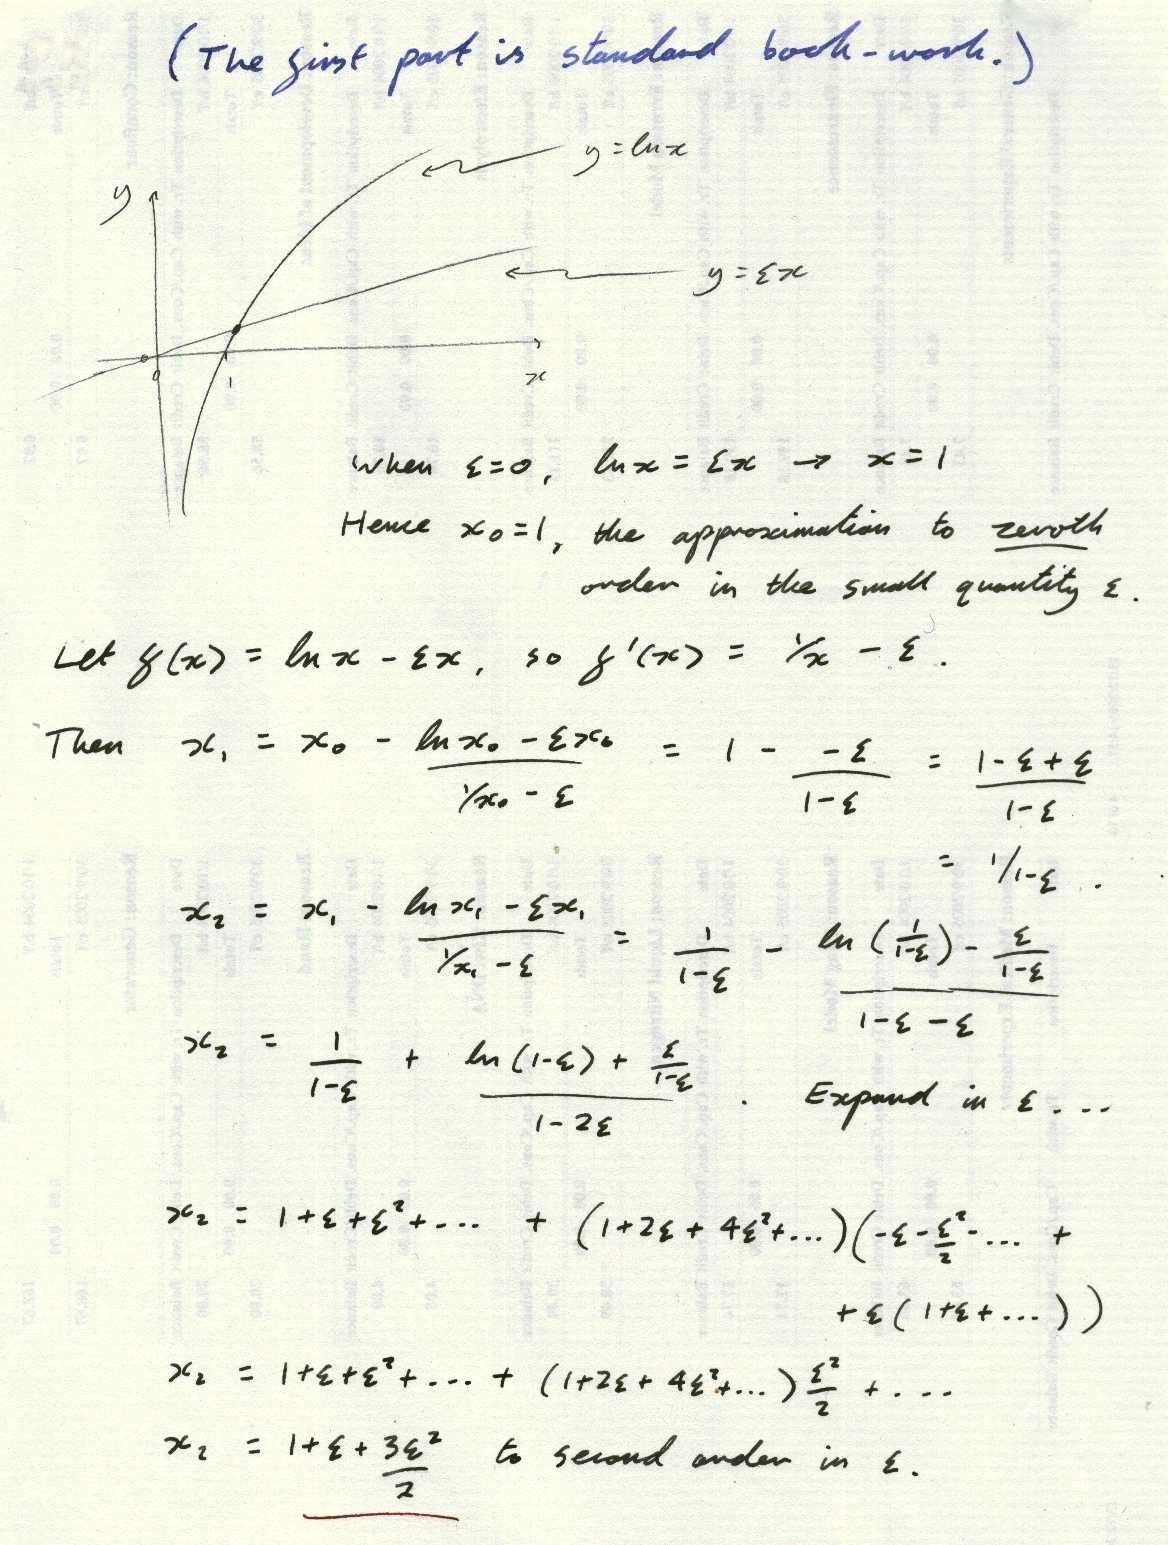 (The first part is standard book-work.)
y = ln x
y
y = εx
0
1
x
When ε=0, ln x = εx → x = 1
Hence x₀=1, the approximation to zeroth
order in the small quantity ε.
Let f(x) = ln x - εx, so f'(x) = 1/x - ε.
Then x₁ = x₀ - (ln x₀ - εx₀)/(1/x₀ - ε) = 1 - (-ε)/(1-ε) = (1-ε+ε)/(1-ε)
= 1/1-ε.
x₂ = x₁ - (ln x₁ - εx₁)/(1/x₁ - ε) = 1/(1-ε) - (ln(1/(1-ε)) - ε/(1-ε))/(1-ε-ε)
x₂ = 1/(1-ε) + (ln(1-ε) + ε/(1-ε))/(1-2ε). Expand in ε...
x₂ = 1+ε+ε²+... + (1+2ε+4ε²+...)(-ε-ε²/2-... +
+ε(1+ε+...))
x₂ = 1+ε+ε²+... + (1+2ε+4ε²+...)ε²/2 + ...
x₂ = 1+ε+3ε²/2 to second order in ε.